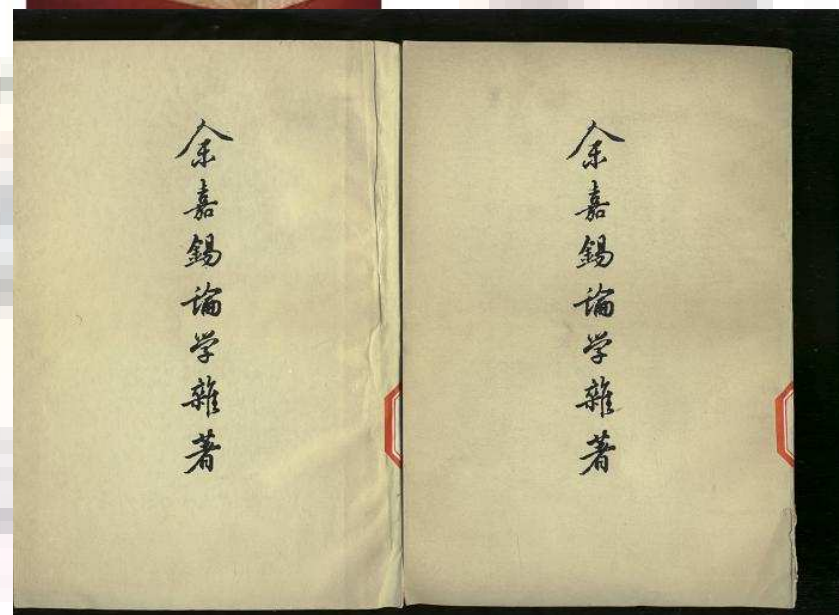 余嘉錫論学雜著
余嘉錫論学雜著